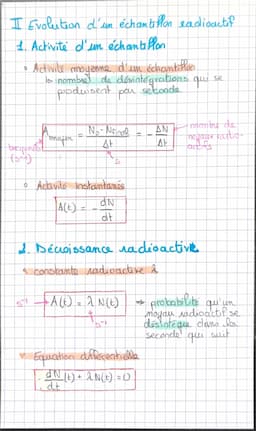 II Evolution d'un échantillon radioactif
1. Activité d'un échantillon
Activité moyenne d'un échantillon
↳ nombre de désintégrations qui se
produisent par seconde
A moyen = - ΔN / Δt
nombre de
(s⁻¹)
s
Activité instantanée
A(t) = - dN/dt
2. Décroissance radioactive
constante radioactive λ
s⁻¹ → A(t) = λ N(t) → probabilité qu'un
noyau radioactif se
désintègre dans la
s⁻¹
seconde qui suit
Equation différentielle
dN/dt (t) + λ N(t) = 0